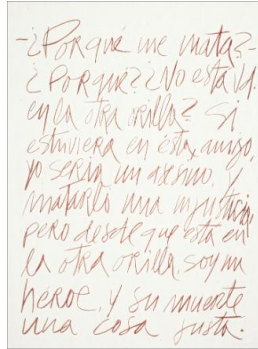 -¿Porqué me mata?-
¿Porqué? ¿No está Vd.
en la otra orilla? Si
estuviera en esta, amigo,
yo seria un asesino, y
matarlo una injusticia,
pero desde que está en
la otra orilla, soy un
héroe, y su muerte
una cosa justa.